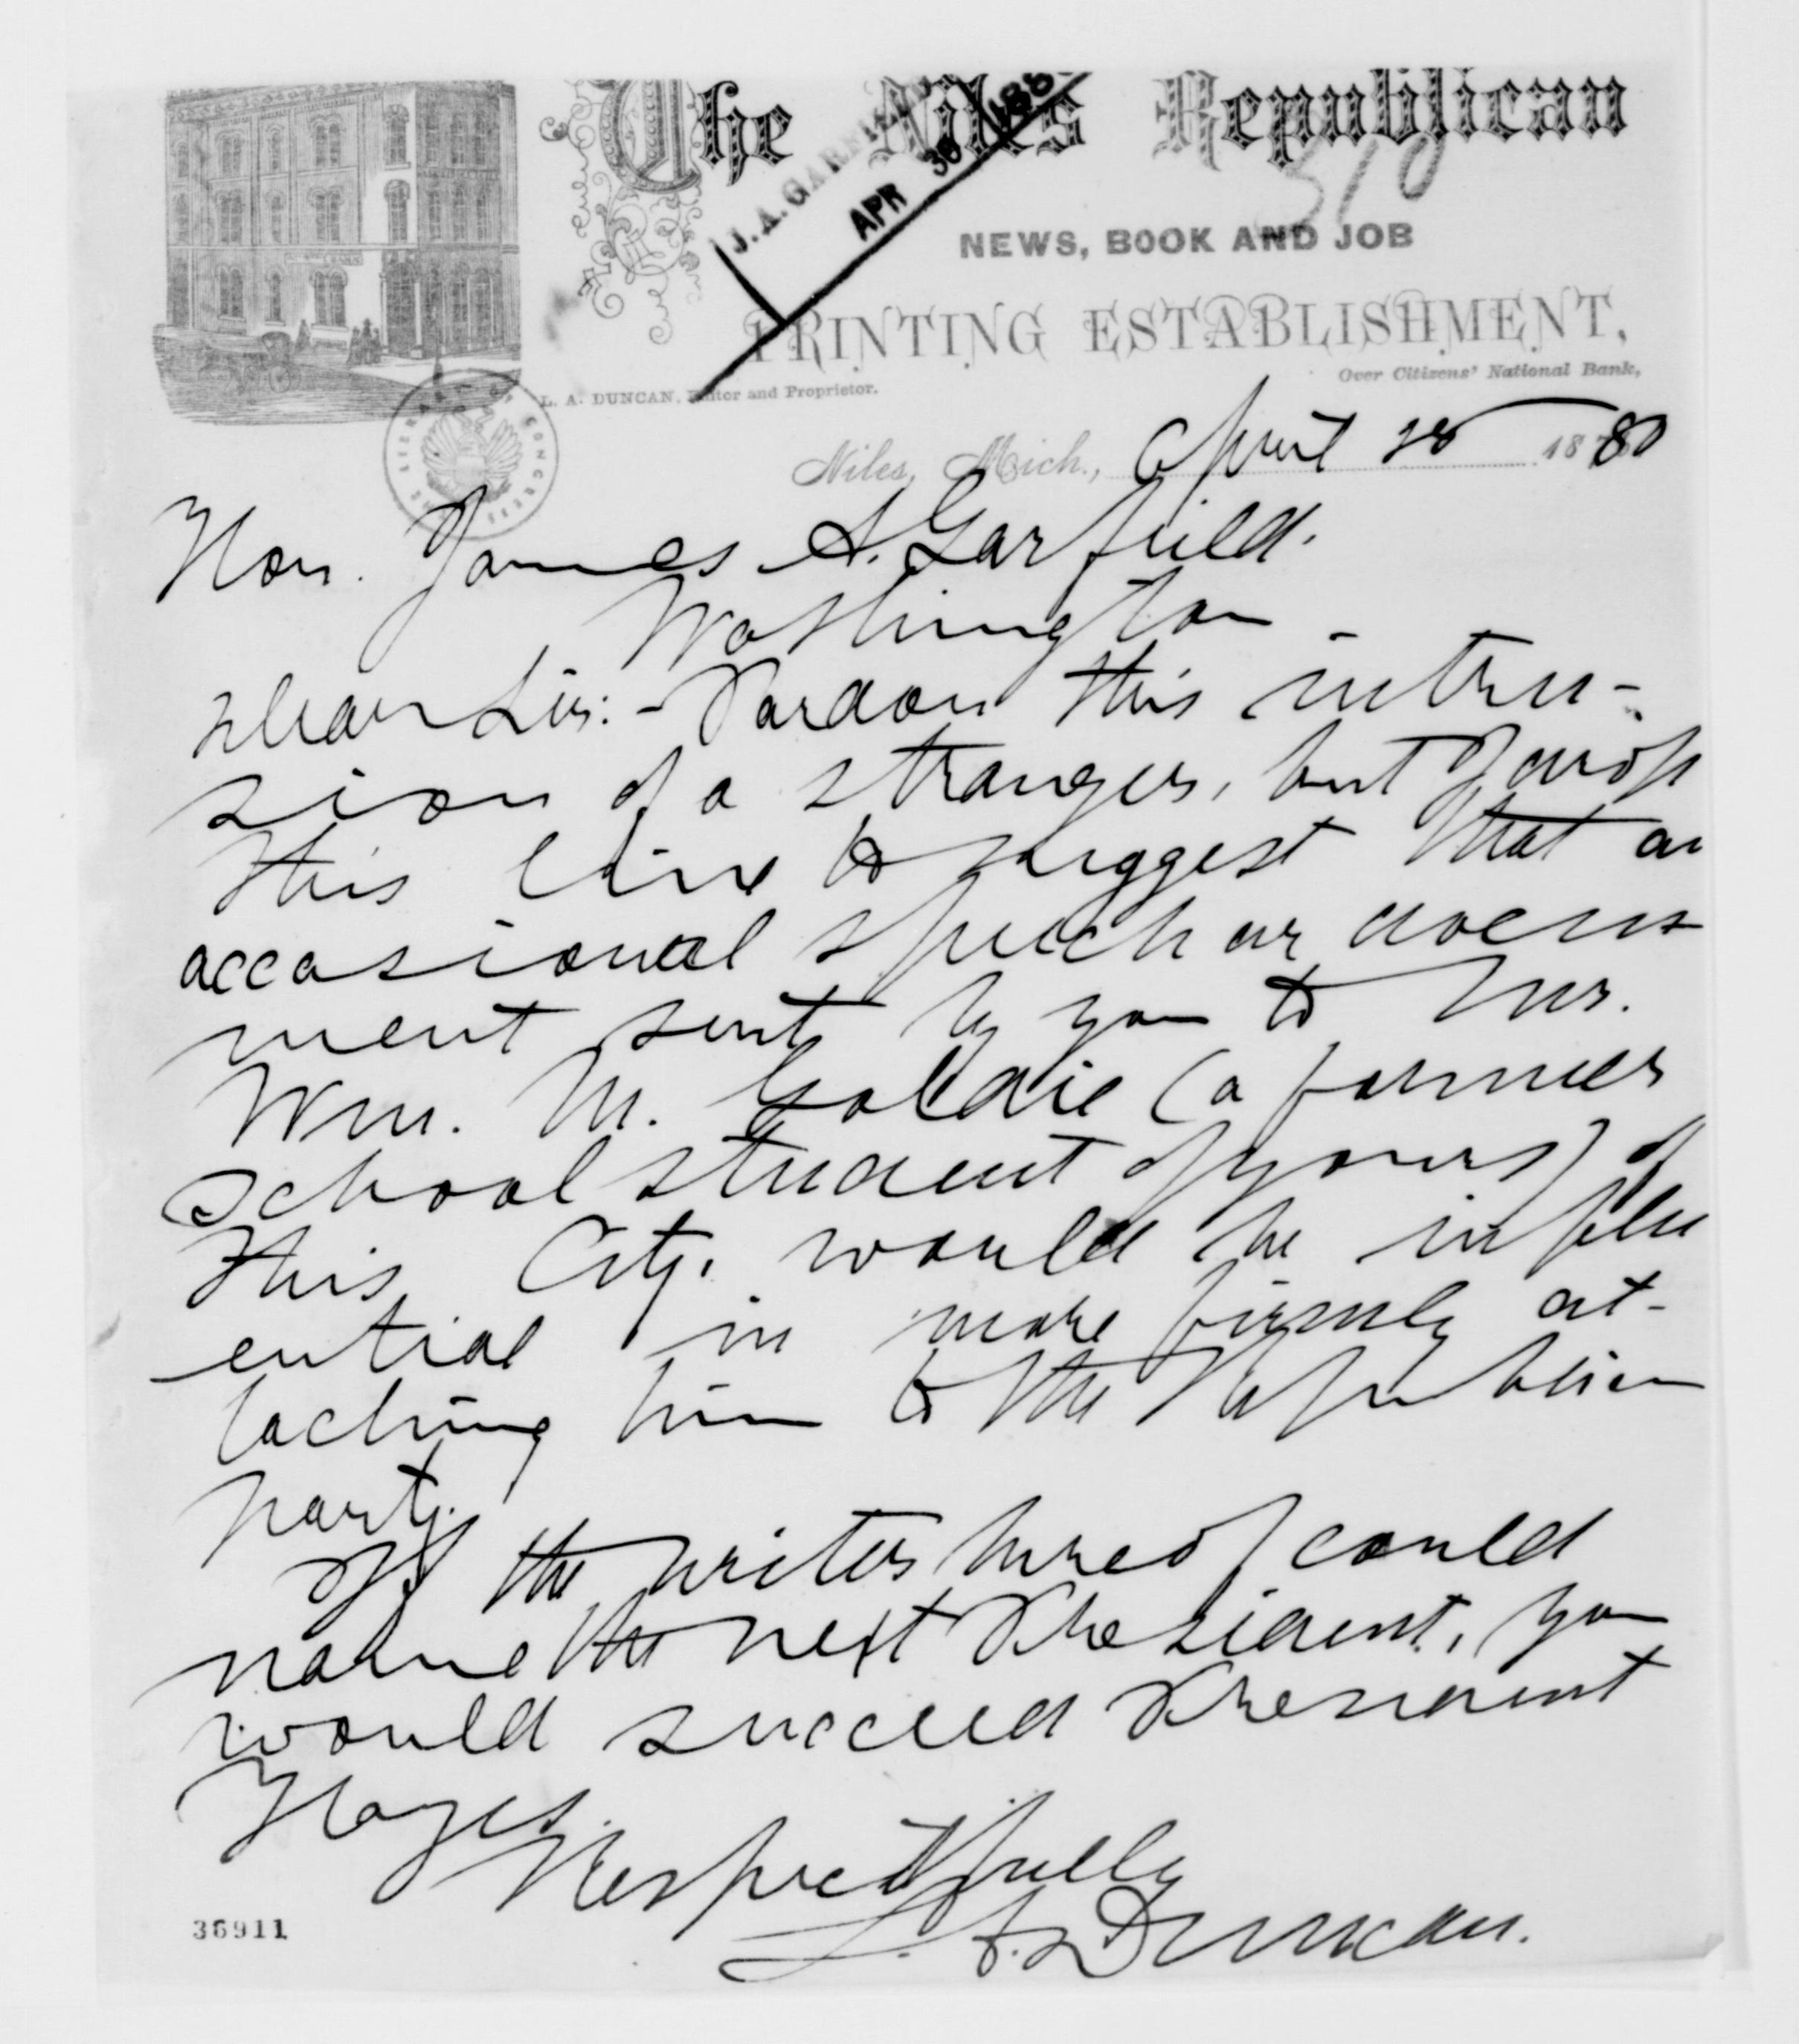 The Niles Republican
J. A. GARFIELD
APR 30 188
510
NEWS, BOOK AND JOB
PRINTING ESTABLISHMENT,
L. A. DUNCAN, Editor and Proprietor.
Over Citizens' National Bank,
LIBRARY OF CONGRESS
Niles, Mich., April 28 1880
Hon. James A. Garfield.
Washington -
Dear Sir:- Pardon this intru-
sion of a stranger, but I drop
this line to suggest that an
occasional speech or docu
ment sent by you to Mr.
Wm. M. Goldie (a former
school student of yours) of
this City. would be influ
ential in more firmly at-
taching him to the Republican
party.
If the writer hereof could
name the next President, you
would succeed President
Hayes.
Respectfully
L. A. Duncan.
36911